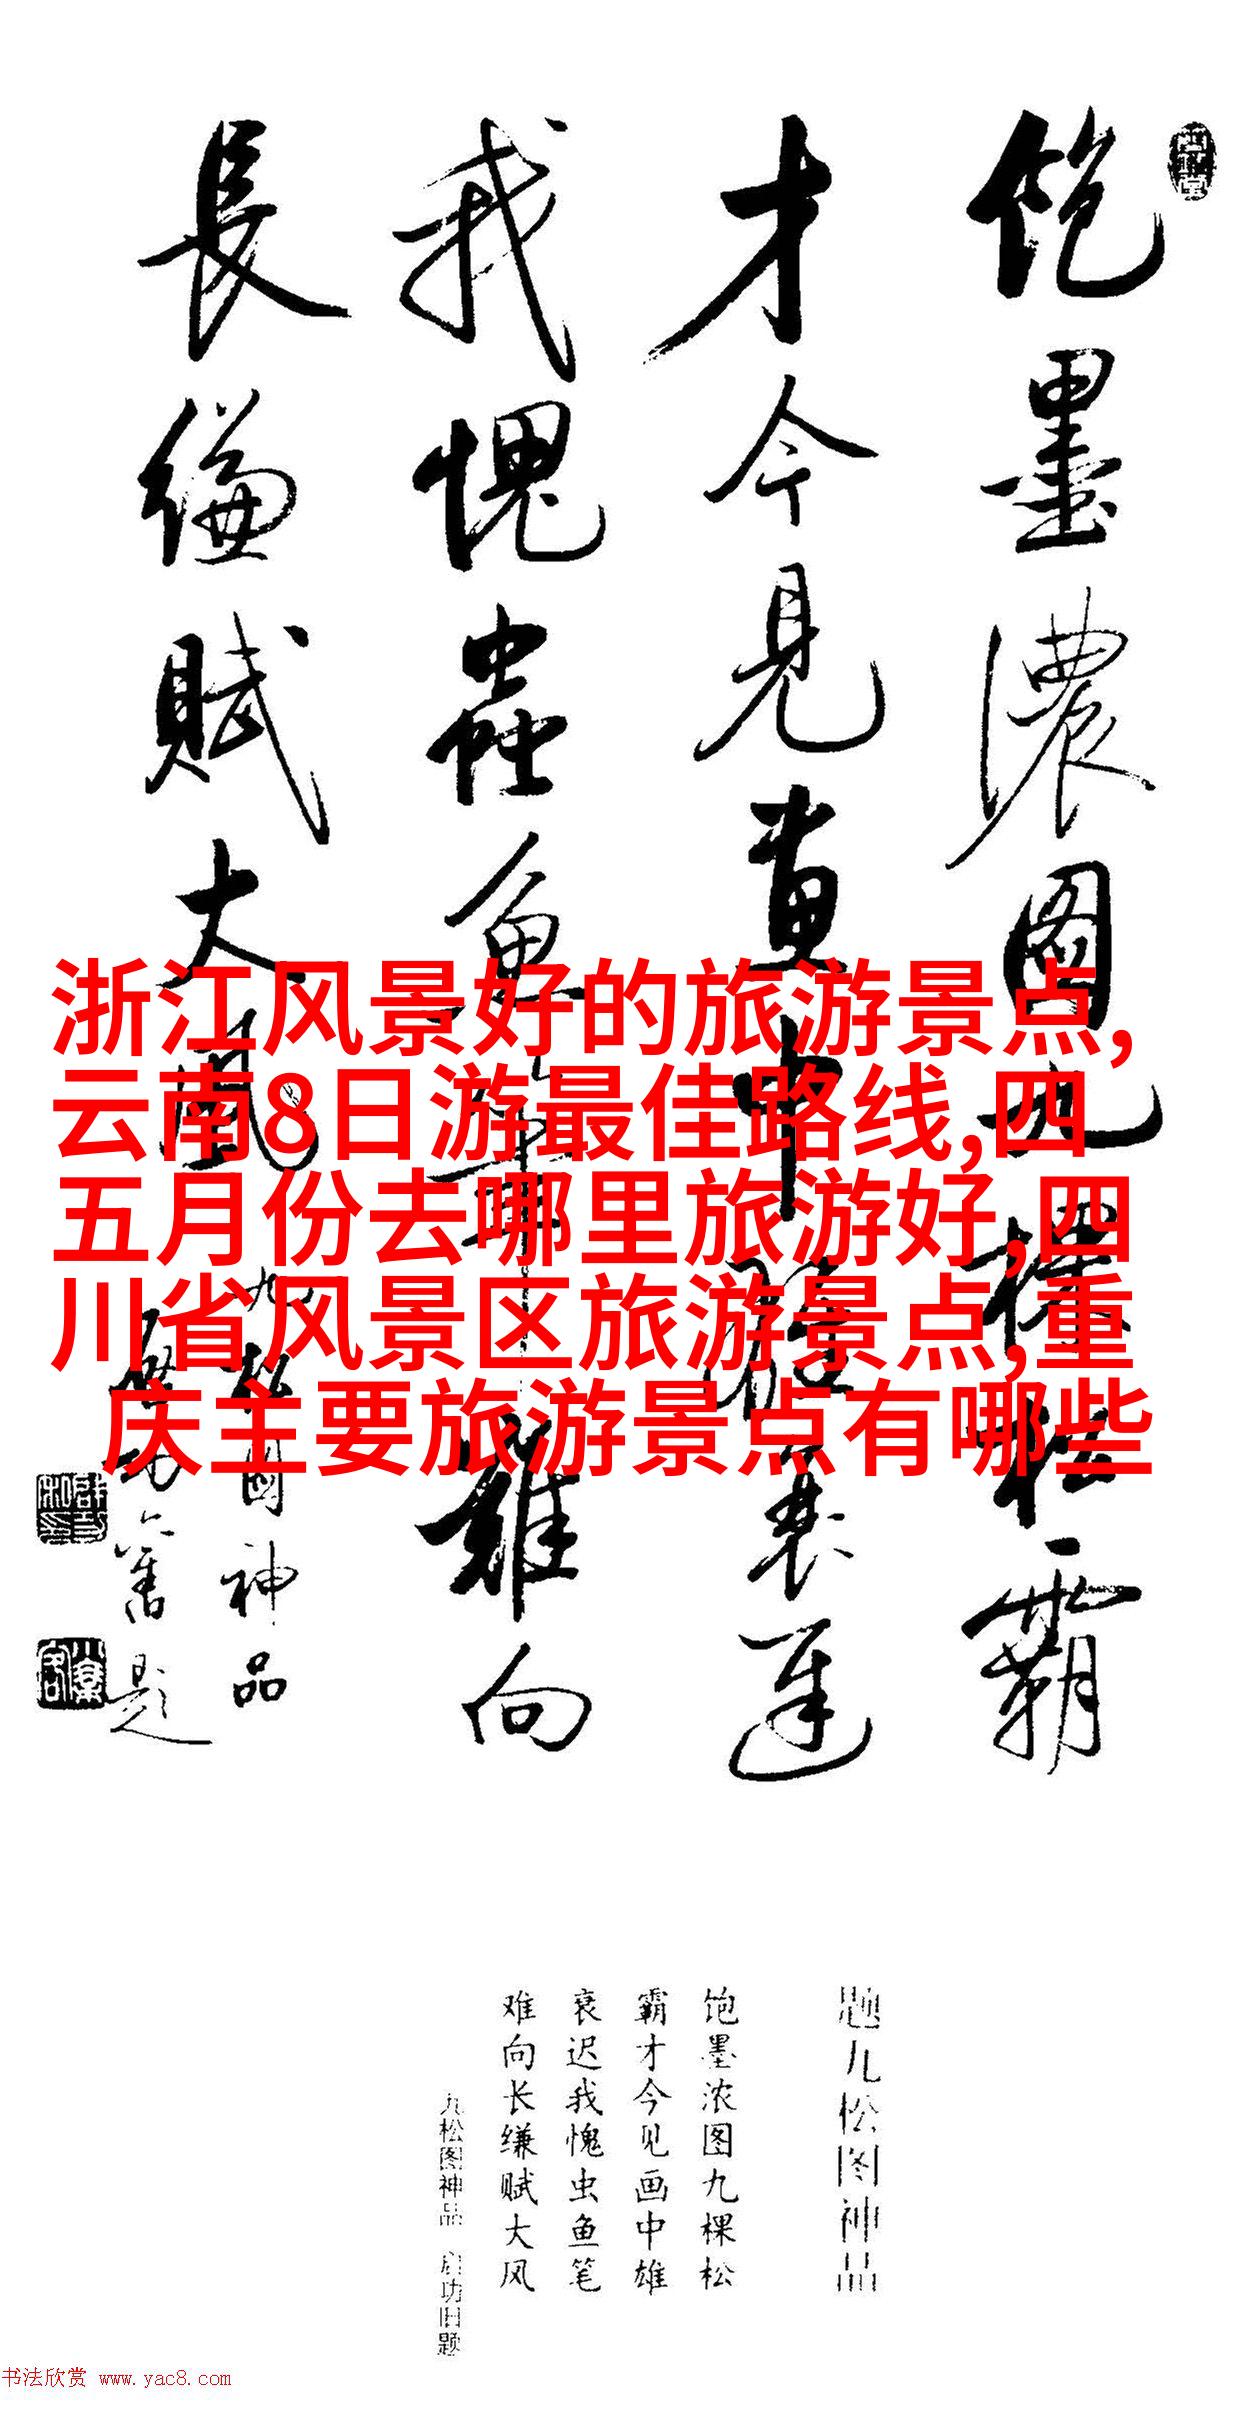 饱墨濃图九棵松霸
才今見畫中雄衰遲
我愧蟲魚筆難向
長縑賦大風
九松图神品
启功舊题
浙江风景好的旅游景点,
云南8日游最佳路线,四
五月份去哪里旅游好,四
川省风景区旅游景点,重
庆主要旅游景点有哪些
题九松图神品
饱墨浓图九棵松
霸才今见画中雄
衰迟我愧虫鱼笔
难向长缣赋大风
九松图神品 启功旧题
书法欣赏 www.yac8.com